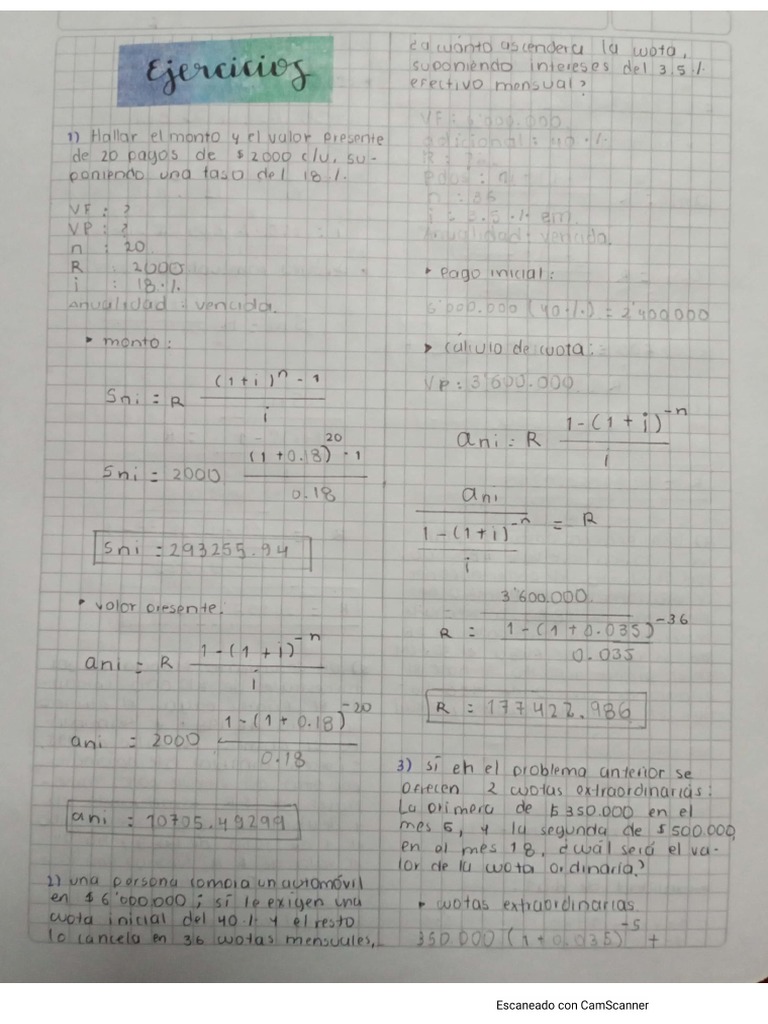 Ejercicios
1) Hallar el monto y el valor presente
de 20 pagos de $2000 c/u, su-
poniendo una tasa del 18%.
VF : ?
VP : ?
n : 20
R : 2000
i : 18%
Anualidad : vencida.
• monto:
Sni = R ((1+i)^n - 1) / i
Sni = 2000 ((1+0.18)^20 - 1) / 0.18
Sni = 293255.94
• valor presente:
ani = R (1-(1+i)^-n) / i
ani = 2000 (1-(1+0.18)^-20) / 0.18
ani = 10705.49299
2) una persona compra un automóvil
en $6'000.000; si le exigen una
cuota inicial del 40% y el resto
lo cancela en 36 cuotas mensuales,
¿a cuánto ascenderá la cuota,
suponiendo intereses del 3.5%
efectivo mensual?
VF : 6'000.000
adicional : 40%
R : ?
n : 36
i = 3.5% em
Anualidad : vencida.
• Pago inicial:
6'000.000 (40%) = 2'400000
> Cálculo de cuota:
VP : 3'600.000
ani = R (1-(1+i)^-n) / i
ani / ((1-(1+i)^-n) / i) = R
R = 3'600.000 / ((1-(1+0.035)^-36) / 0.035)
R = 177422.986
3) Si en el problema anterior se
ofrecen 2 cuotas extraordinarias:
La primera de $350.000 en el
mes 5, y la segunda de $500.000,
en el mes 18, ¿cuál será el va-
lor de la cuota ordinaria?
• cuotas extraordinarias
350.000 (1+0.035)^-5 +
Escaneado con CamScanner